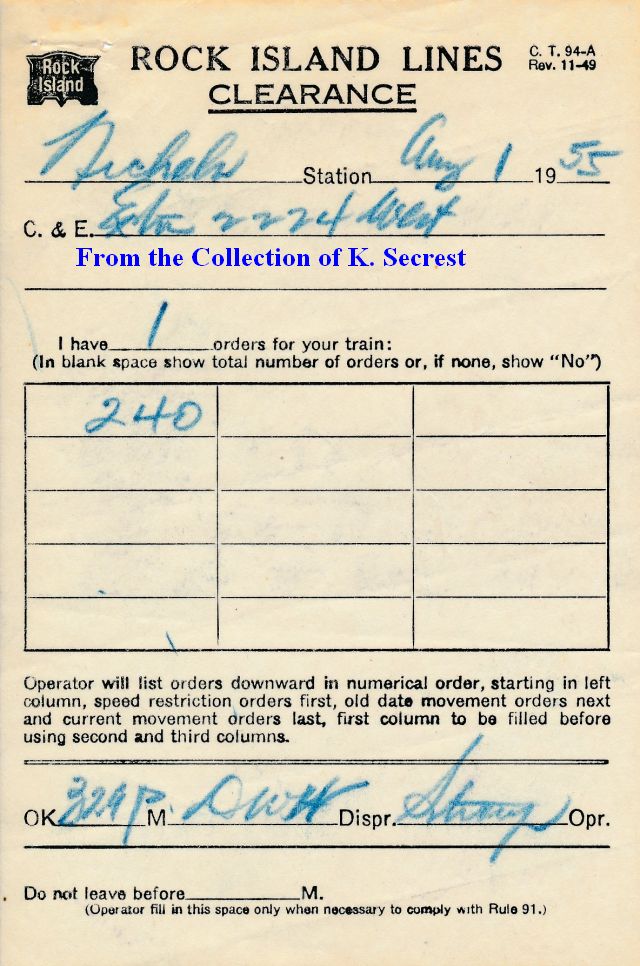 Rock Island
ROCK ISLAND LINES
C. T. 94-A
Rev. 11-49
CLEARANCE
Nichols Station Aug 1 19 55
C. & E. Extra 2224 West
From the Collection of K. Secrest
I have 1 orders for your train:
(In blank space show total number of orders or, if none, show "No")
240
Operator will list orders downward in numerical order, starting in left
column, speed restriction orders first, old date movement orders next
and current movement orders last, first column to be filled before
using second and third columns.
OK 329 P M. DWH Dispr. Opr.
Do not leave before M.
(Operator fill in this space only when necessary to comply with Rule 91.)